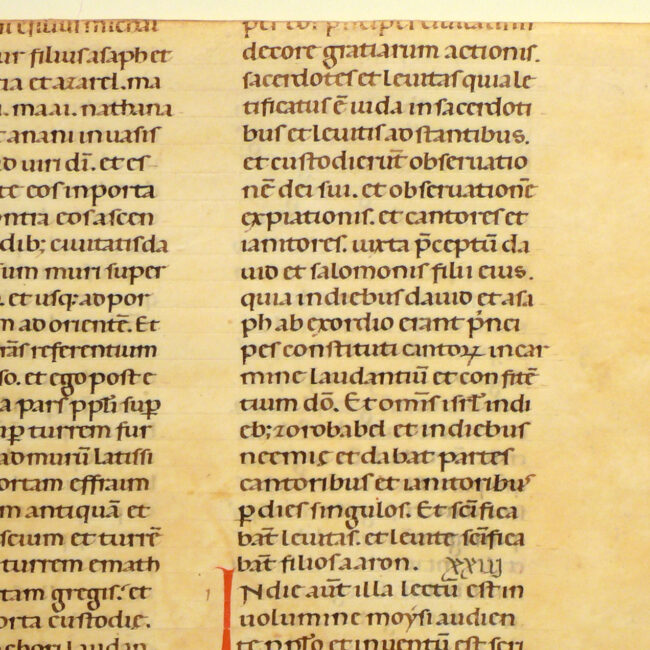 ur filius asaph et
ia et azarel. ma
i. maai. nathana
t anani in uasis
d uiri dī. et es
te eos in porta
ntra eos ascen
dib; ciuitatis da
sum muri super
. et usq: ad por
m ad orientē. Et
rās referentium
so. et ego post e
a pars ppłi sup
up turrem fur
ad murū latissi
ortam effraim
m antiquā et
seium et turrē
turrem emath
tam gregis. et
orta custodie.
chori laudan
decore gratiarum actionis.
sacerdotes et leuitas quia le
tificatus ē iuda in sacerdoti
bus et leuitis adstantibus.
et custodierūt obseruatio
nē dei sui. et obseruationē
expiationis. et cantores et
ianitores. iuxta p̄ceptū da
uid et salomonis filii eius.
quia in diebus dauid et asa
ph ab exordio erant p̄nci
pes constituti cantoꝝ in car
mine laudantiū et confitē
tium dō. Et omīs isrł in di
eb; zorobabel et in diebus
neemię et dabat partes
cantoribus et ianitoribus
ꝑ dies singulos. Et scīfica
bāt leuitas. et leuite scīfica
bāt filios aaron. xxiij
IN die aūt illa lectū est in
uolumine moysi audien
te pplo et inuentū est scri